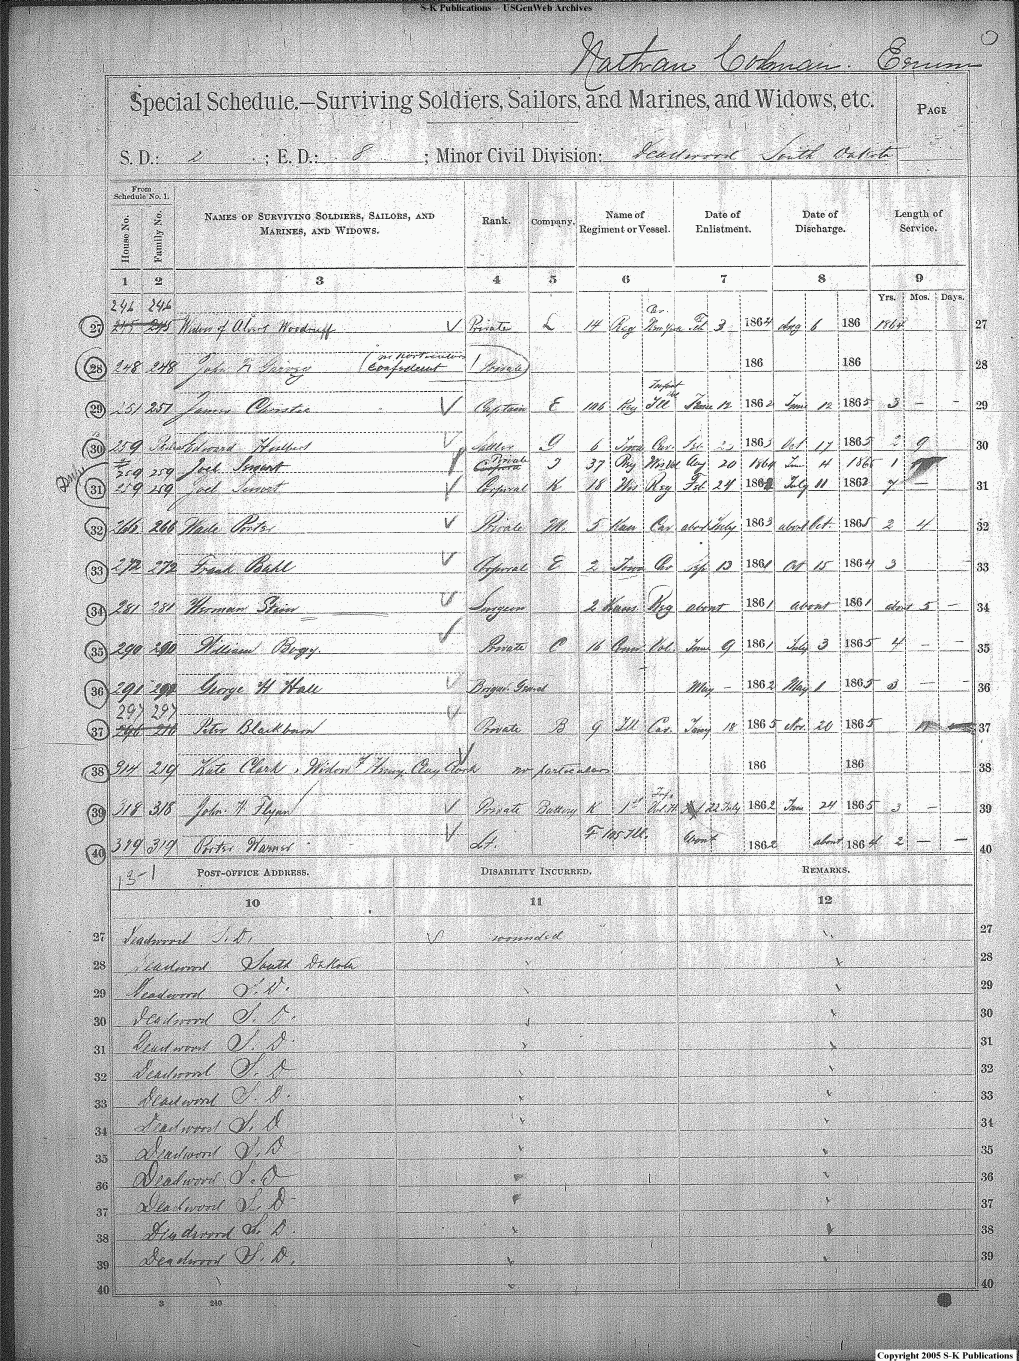 S-K Publications – USGenWeb Archives
Nathan Colman. Enum
Special Schedule.—Surviving Soldiers, Sailors, and Marines, and Widows, etc.
PAGE
S. D.: 2 ; E. D.: 8 ; Minor Civil Division: Deadwood South Dakota
From Schedule No. 1.
House No. Family No. NAMES OF SURVIVING SOLDIERS, SAILORS, AND MARINES, AND WIDOWS. Rank. Company. Name of Regiment or Vessel. Date of Enlistment. Date of Discharge. Length of Service.
1 2 3 4 5 6 7 8 9
Yrs. Mos. Days.
246 246
27 245 245 Widow of Woodruff Private L 14 Reg Feb 3 1864 Aug 6 186 1864 27
28 248 248 John Garvey Confederate Private 186 186 28
29 251 251 James Christie Captain E 106 Reg Ill June 12 1862 June 12 1865 3 – – 29
30 259 Edward Hulbert G 6 Iowa Cav 1863 Oct 17 1865 2 9 30
259 259 Joel Smart Private 37 Reg Aug 20 1864 4 1865 1
31 259 259 Joel Corporal K 18 Wis Reg Feb 24 1862 July 11 186 31
32 266 266 Wade Porter Private M. 5 Kan Cav about July 1863 about Oct. 1865 2 4 32
33 272 272 Frank Bahl Corporal E 2 Iowa Cav Sep 13 1861 Oct 15 1864 3 33
34 281 281 Herman Stein Surgeon 2 Kans Reg about 1861 about 1861 about 5 – 34
35 290 290 William Bogy. Private C 16 Vol. June 9 1861 July 3 1865 4 – – 35
36 291 George H Hall May – 1862 May 1 1865 3 – – 36
297 297
37 Peter Blackburn Private B 9 Ill Cav. 18 1865 Nov. 20 1865 37
38 314 219 Kate Clark, Widow of Henry Clay Clark no particulars 186 186 38
39 318 318 John H Flynn Private Battery K 1st 22 July 1862 June 24 1865 3 – 39
40 319 319 Porter Warner Lt. F 105 Ill. about 1862 about 1864 2 – – 40
13-1 POST-OFFICE ADDRESS. DISABILITY INCURRED. REMARKS.
10 11 12
27 Deadwood S. D. wounded 27
28 Deadwood South Dakota 28
29 Deadwood S. D. 29
30 Deadwood S. D. 30
31 Deadwood S. D. 31
32 Deadwood S. D 32
33 Deadwood S. D. 33
34 Deadwood S. D 34
35 Deadwood S. D 35
36 Deadwood S. D 36
37 Deadwood S. D 37
38 Deadwood S. D. 38
39 Deadwood S. D. 39
40 40
3 240
Copyright 2005 S-K Publications